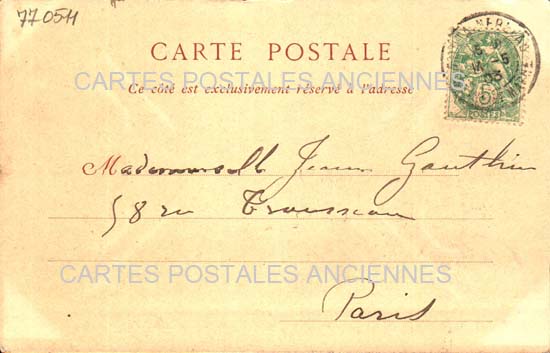 77 0511
CARTE POSTALE
CARTES POSTALES ANCIENNES
Ce côté est exclusivement réservé à l'adresse
5
POSTES
03
Mademoiselle Jeanne Gauthier
58 rue Trousseau
CARTES POSTALES ANCIENNES
Paris